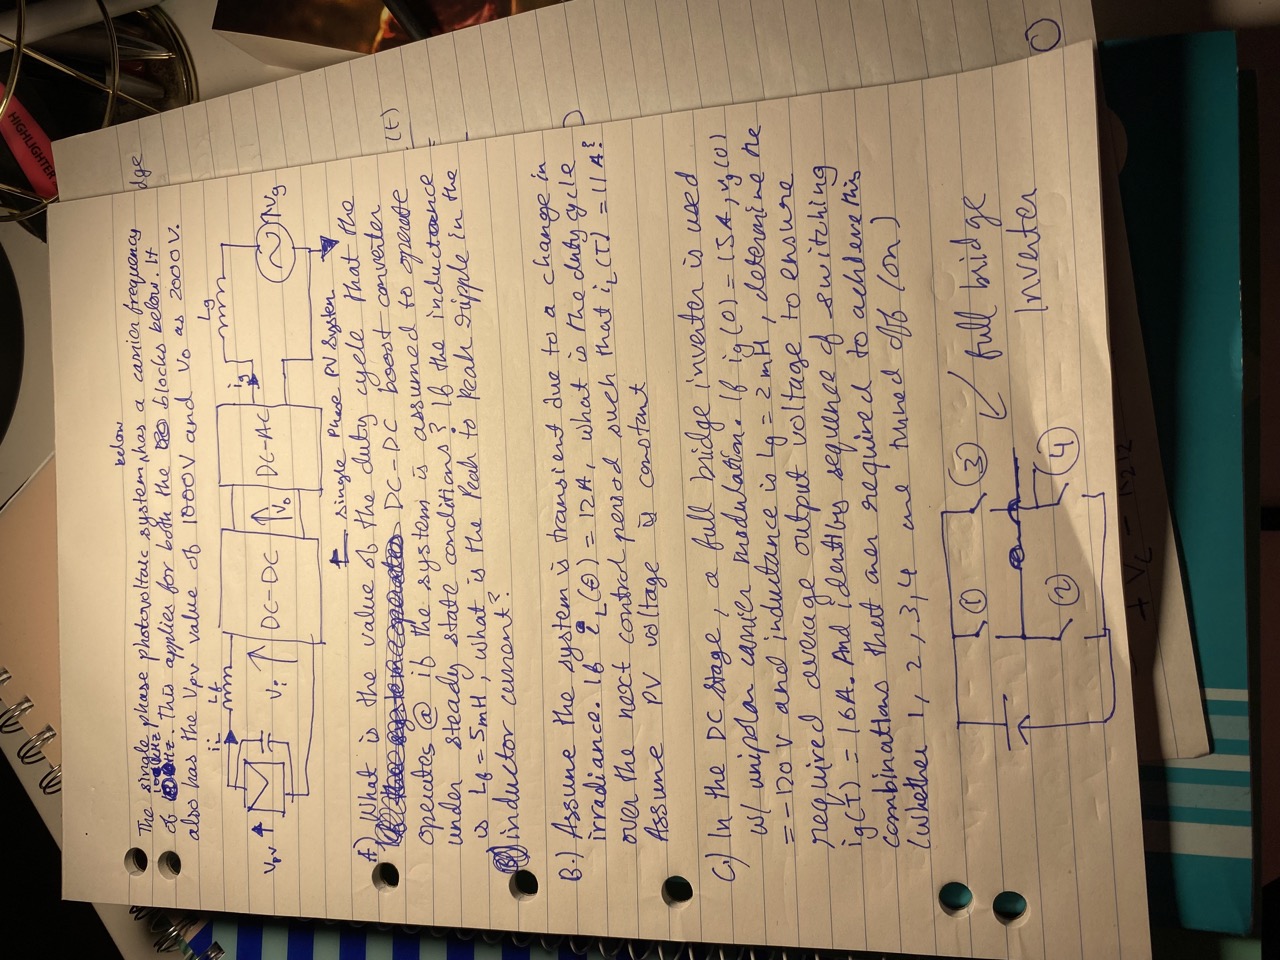 below
The single phase photovoltaic system has a carrier frequency
of 10 kHz. This applies for both the blocks below. It
also has the Vpv value of 1000V and Vo as 2000V.
Vpv
iL
Lf
Vi
DC-DC
Vo
DC-AC
ig
Lg
Vg
single phase PV system
A) What is the value of the duty cycle that the
DC-DC boost converter
operates @ if the system is assumed to operate
under steady state conditions? If the inductance
is Lf = 5mH, what is the Peak to Peak ripple in the
inductor current?
B.) Assume the system is transient due to a change in
irradiance. If iL(0) = 12A, what is the duty cycle
over the next control period such that iL(T) = 11A?
Assume PV voltage is constant
C.) In the DC stage, a full bridge inverter is used
w/ unipolar carrier modulation. If ig(0) = 15A, vg(0)
= -120V and inductance is Lg = 2mH, determine the
required average output voltage to ensure
ig(T) = 16A. And identify sequence of switching
combinations that are required to achieve this
(whether 1, 2, 3, 4 are turned off/on)
1
2
3
4
full bridge
Inverter
dge
(t)
+ VL -
HIGHLIGHTER